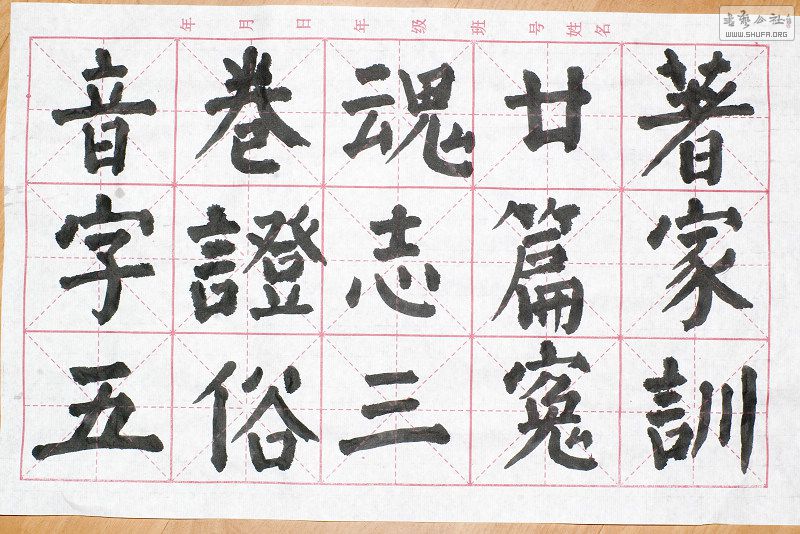 著家訓
廿篇寃
魂志三
卷證俗
音字五
年 月 日 年 级 班 号 姓名
書藝公社
WWW.SHUFA.ORG